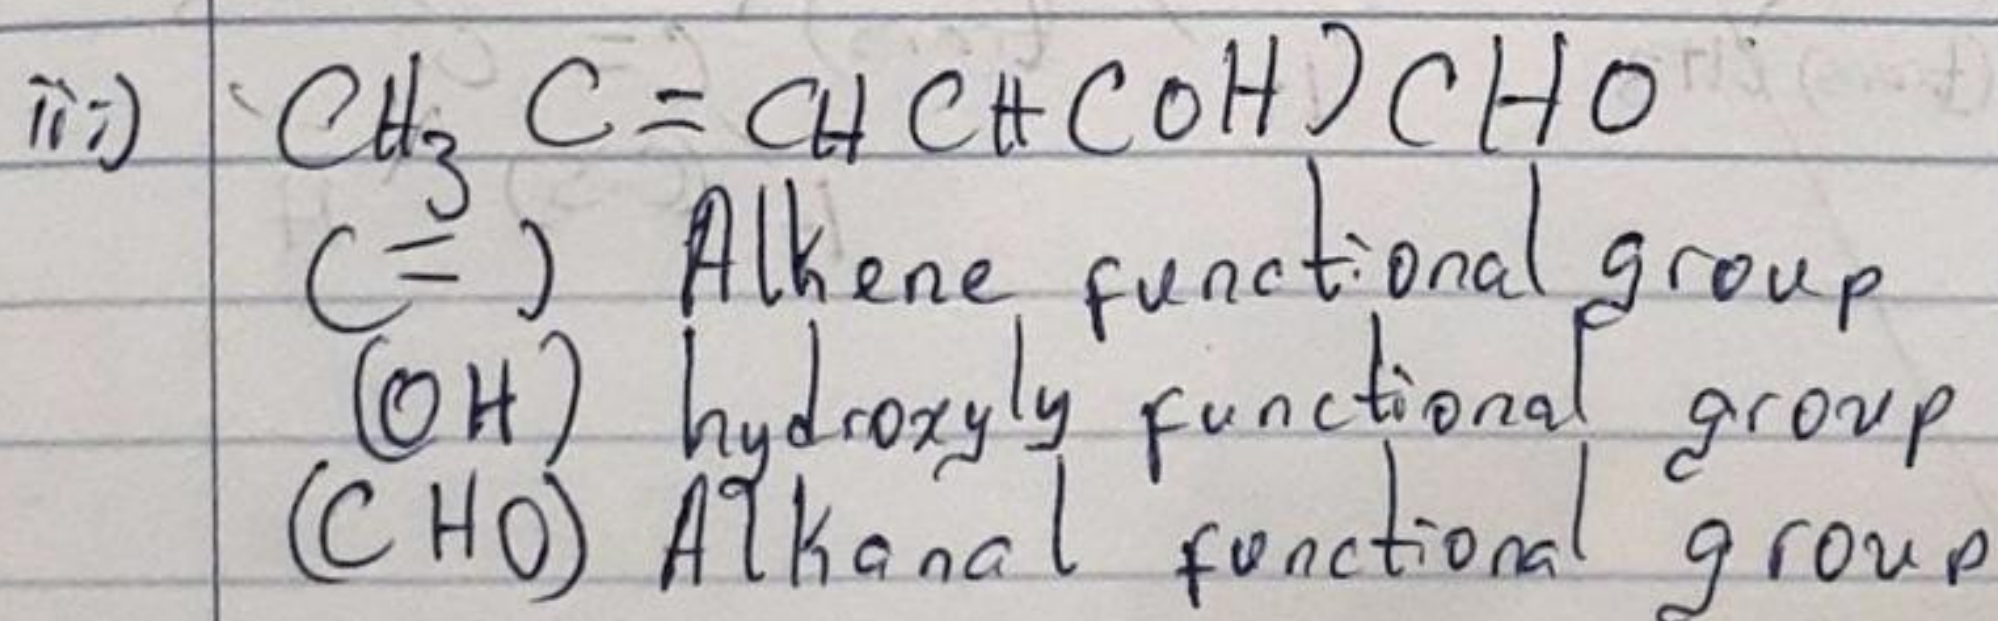 ii:) CH₃ C = CH CH (OH) CHO
(= ) Alkene functional group
(OH) hydroxyly functional group
(CHO) Alkanal functional group